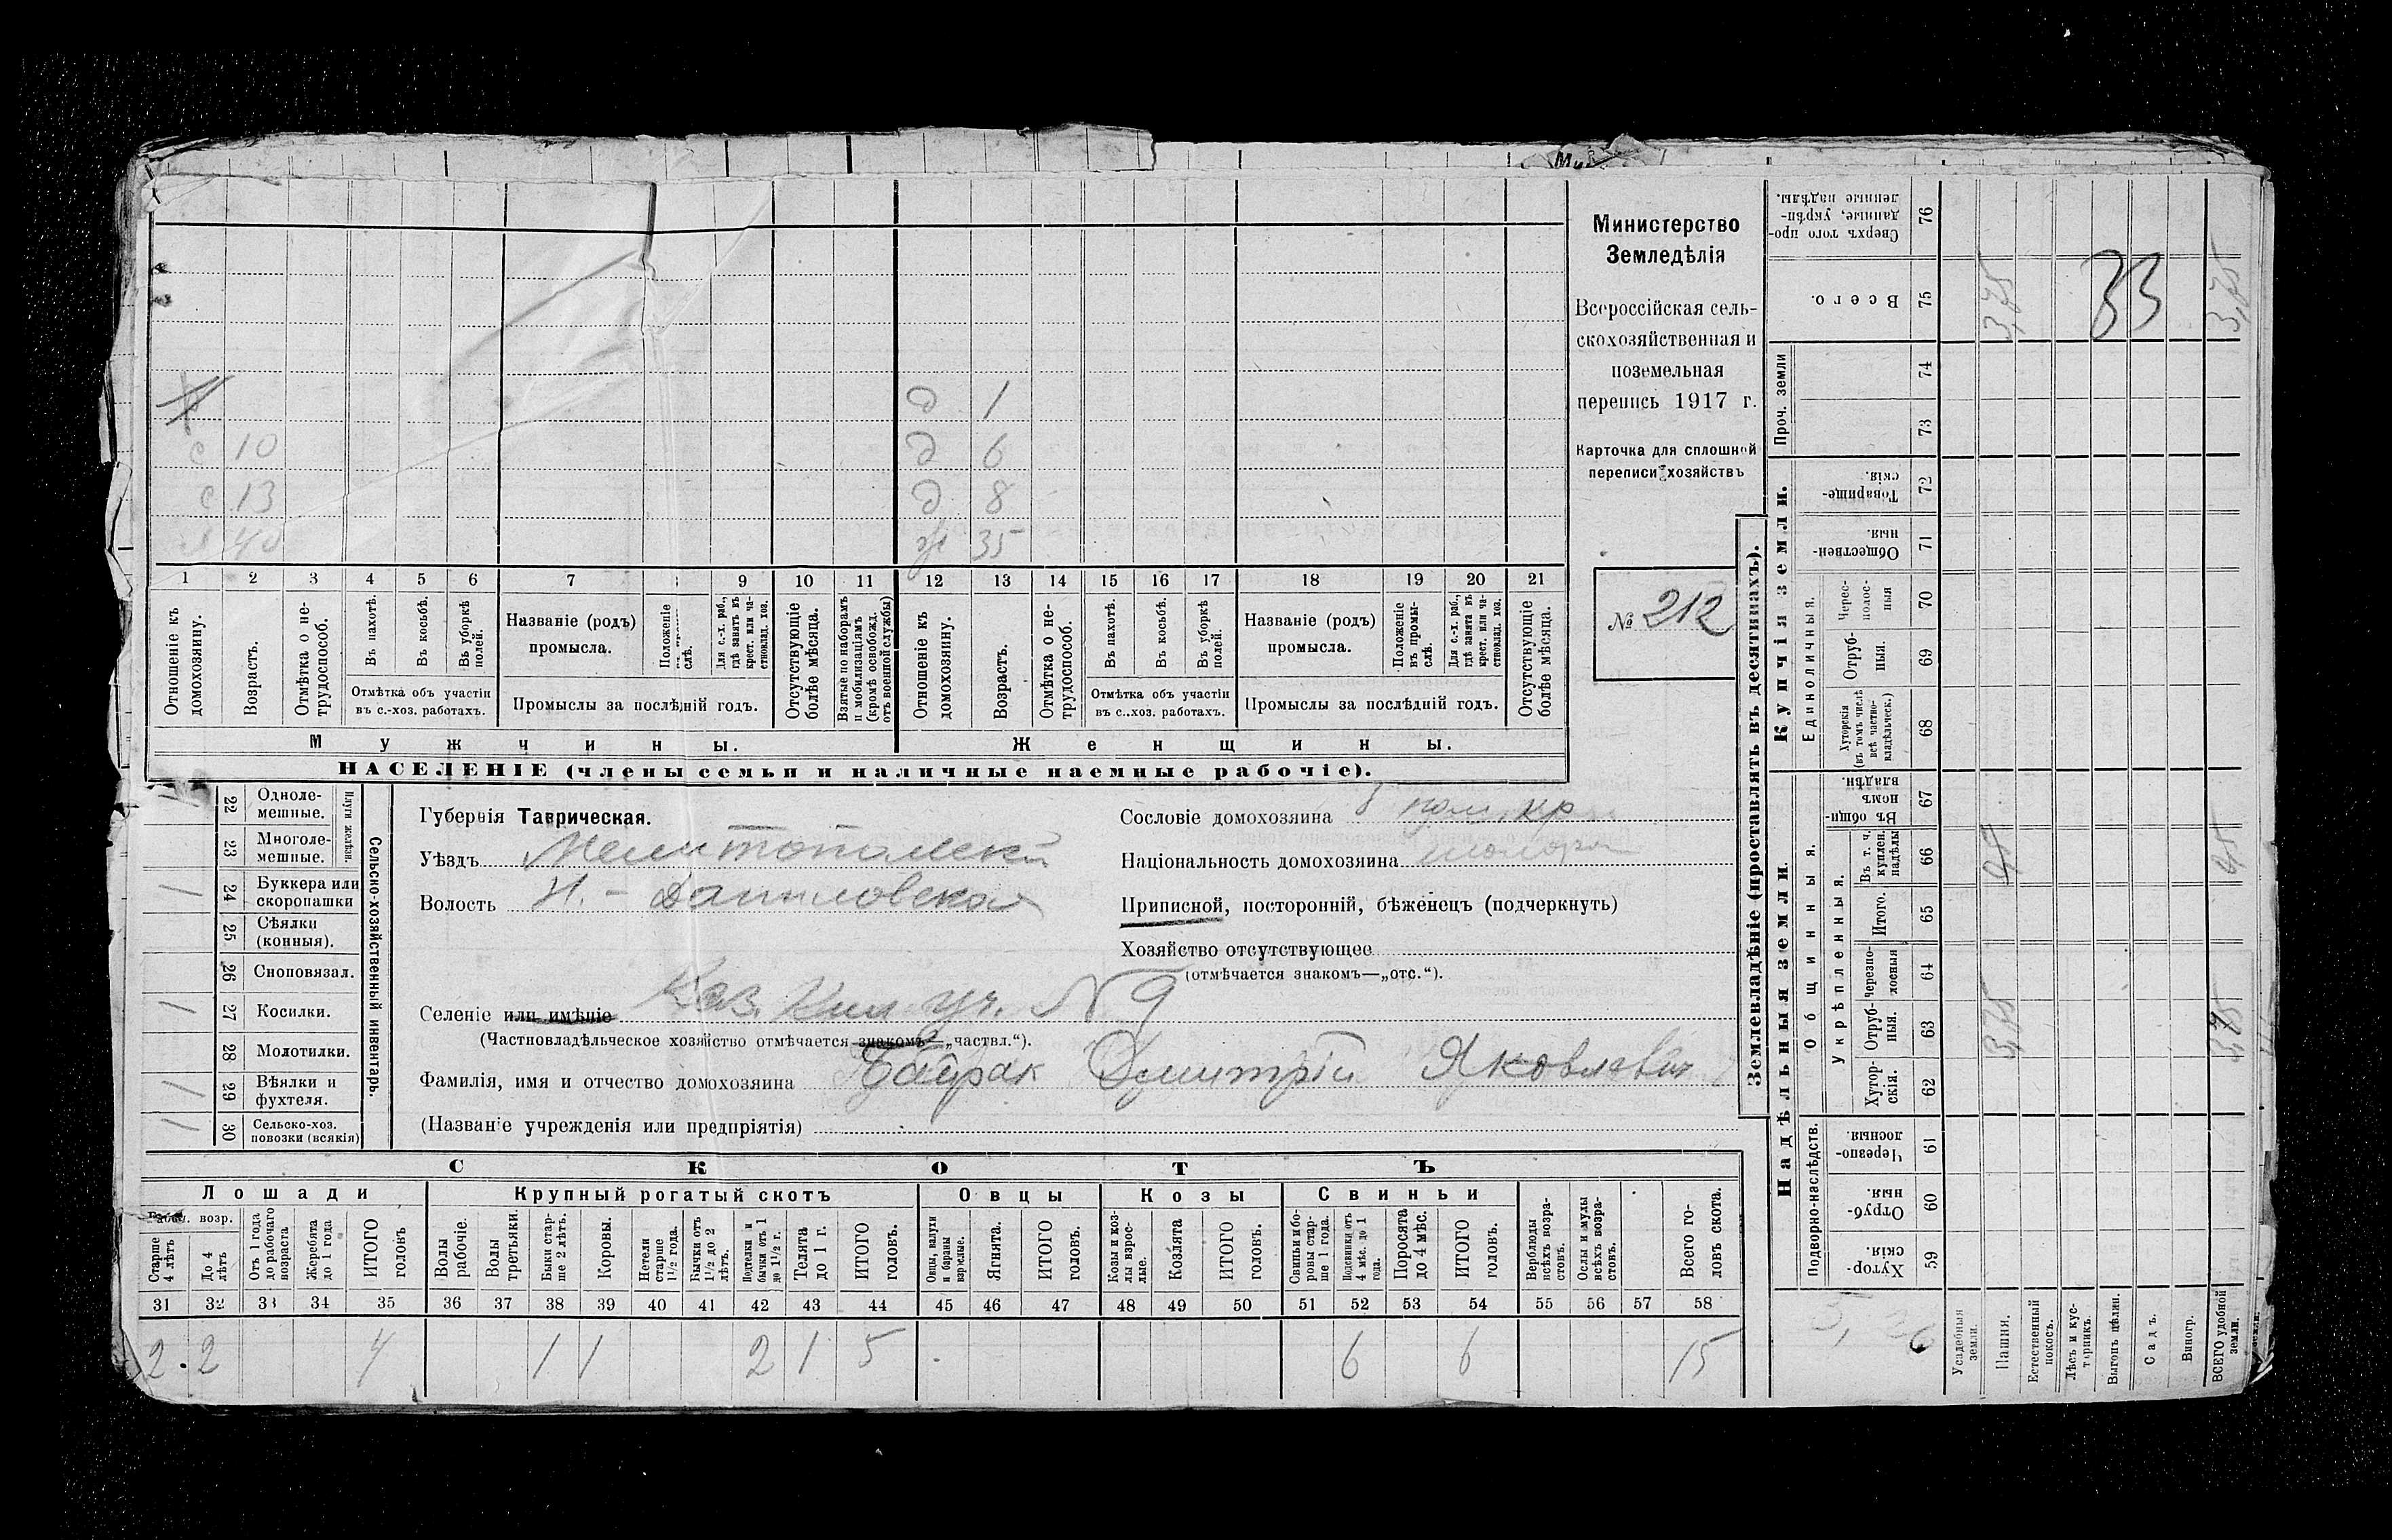 Министерство
Земледѣлія
Всероссійская сель-
скохозяйственная и
поземельная
перепись 1917 г.
Карточка для сплошной
переписи хозяйствъ
№ 212
д 1
с 10 д 6
с 13 д 8
40 ж 35
1 2 3 4 5 6 7 9 10 11 12 13 14 15 16 17 18 19 20 21
Отношеніе къ домохозяину.
Возрастъ.
Отмѣтка о не-трудоспособ.
Въ пахотѣ.
Въ косьбѣ.
Въ уборкѣ полей.
Отмѣтка объ участіи въ с.-хоз. работахъ.
Названіе (родъ) промысла.
Положеніе слѣ.
Для с.-х. раб., гдѣ занятъ въ крест. или ча-стновлад. хоз.
Промыслы за послѣдній годъ.
Отсутствующіе болѣе мѣсяца.
Взятые по наборамъ и мобилизаціямъ (кромѣ освобожд. отъ военной службы)
Отношеніе къ домохозяину.
Возрастъ.
Отмѣтка о не-трудоспособ.
Въ пахотѣ.
Въ косьбѣ.
Въ уборкѣ полей.
Отмѣтка объ участіи въ с..хоз. работахъ.
Названіе (родъ) промысла.
Положеніе въ промы-слѣ.
Для с.-х. раб., гдѣ занята въ крест. или ча-стновлад. хоз.
Промыслы за послѣдній годъ.
Отсутствующіе болѣе мѣсяца.
Мужчины. Женщины.
НАСЕЛЕНІЕ (члены семьи и наличные наемные рабочіе).
Сельско-хозяйственный инвентарь.
Плуги желѣзн.
22 Одноле-мешные.
23 Многоле-мешные.
1 24 Буккера или скоропашки
25 Сѣялки (конныя).
26 Сноповязал.
1 27 Косилки.
28 Молотилки.
1 29 Вѣялки и фухтеля.
1 30 Сельско-хоз. повозки (всякія)
Губернія Таврическая.
Уѣздъ Мелитопольскій
Волость Н.-Даниловская
Селеніе или имѣніе Каз. уч. N 9
(Частновладѣльческое хозяйство отмѣчается знакомъ „частвл.“).
Фамилія, имя и отчество домохозяина Байрак Димитрій Яковлевич
(Названіе учрежденія или предпріятія)
Сословіе домохозяина кр
Національность домохозяина
Приписной, посторонній, бѣженецъ (подчеркнуть)
Хозяйство отсутствующее
(отмѣчается знакомъ—„отс.“).
СКОТЪ
Лошади Крупный рогатый скотъ Овцы Козы Свиньи
возр.
Старше 4 лѣтъ
До 4 лѣтъ
Отъ 1 года до рабочаго возраста
Жеребята до 1 года
ИТОГО головъ
Волы рабочіе.
Волы третьяки.
Быки стар-ше 2 лѣтъ.
Коровы.
Нетели старше 1½ года.
Бычки отъ 1½ до 2 лѣтъ.
Подтелки и бычки отъ 1 до 1½ г.
Телята до 1 г.
ИТОГО головъ.
Овцы, валухи и бараны взрослые.
Ягнята.
ИТОГО головъ.
Козы и коз-лы взрос-лые.
Козлята
ИТОГО головъ.
Свиньи и бо-ровы стар-ше 1 года.
Подсвинки отъ 4 мѣс. до 1 года.
Поросята до 4 мѣс.
ИТОГО головъ.
Верблюды всѣхъ возра-стовъ.
Ослы и мулы всѣхъ возра-стовъ.
Всего го-ловъ скота.
31 32 33 34 35 36 37 38 39 40 41 42 43 44 45 46 47 48 49 50 51 52 53 54 55 56 57 58
2 2 4 1 1 2 1 5 6 6 15
Землевладѣніе (проставлять въ десятинахъ).
Купчія земли.
Надѣльныя земли.
Сверхъ того про-данные, укрѣп-ленные надѣлы. 76
Всего. 75 3,75 33 3,75
Проч. земли 74
73
Товарище-скія. 72
Обществен-ныя. 71
Единоличныя.
Черес-полос-ныя 70
Отруб-ныя. 69
Хуторскія (въ томъ числѣ всѣ частно-владѣльческ.) 68
Общинныя.
Въ общин-номъ владѣн. 67
Укрѣпленныя.
Въ т. ч. куплен. надѣлы 66
Итого. 65
Черезпо-лосныя 64
Отруб-ныя. 63 3,75
Хутор-скія. 62
Подворно-наслѣдств.
Черезпо-лосныя. 61
Отруб-ныя. 60
Хутор-скія. 59
Усадебныя земли.
Пашня.
Естественный покосъ.
Лѣсъ и кус-тарникъ.
Выгонъ цѣлин.
Садъ.
Виногр.
ВСЕГО удобной земли.